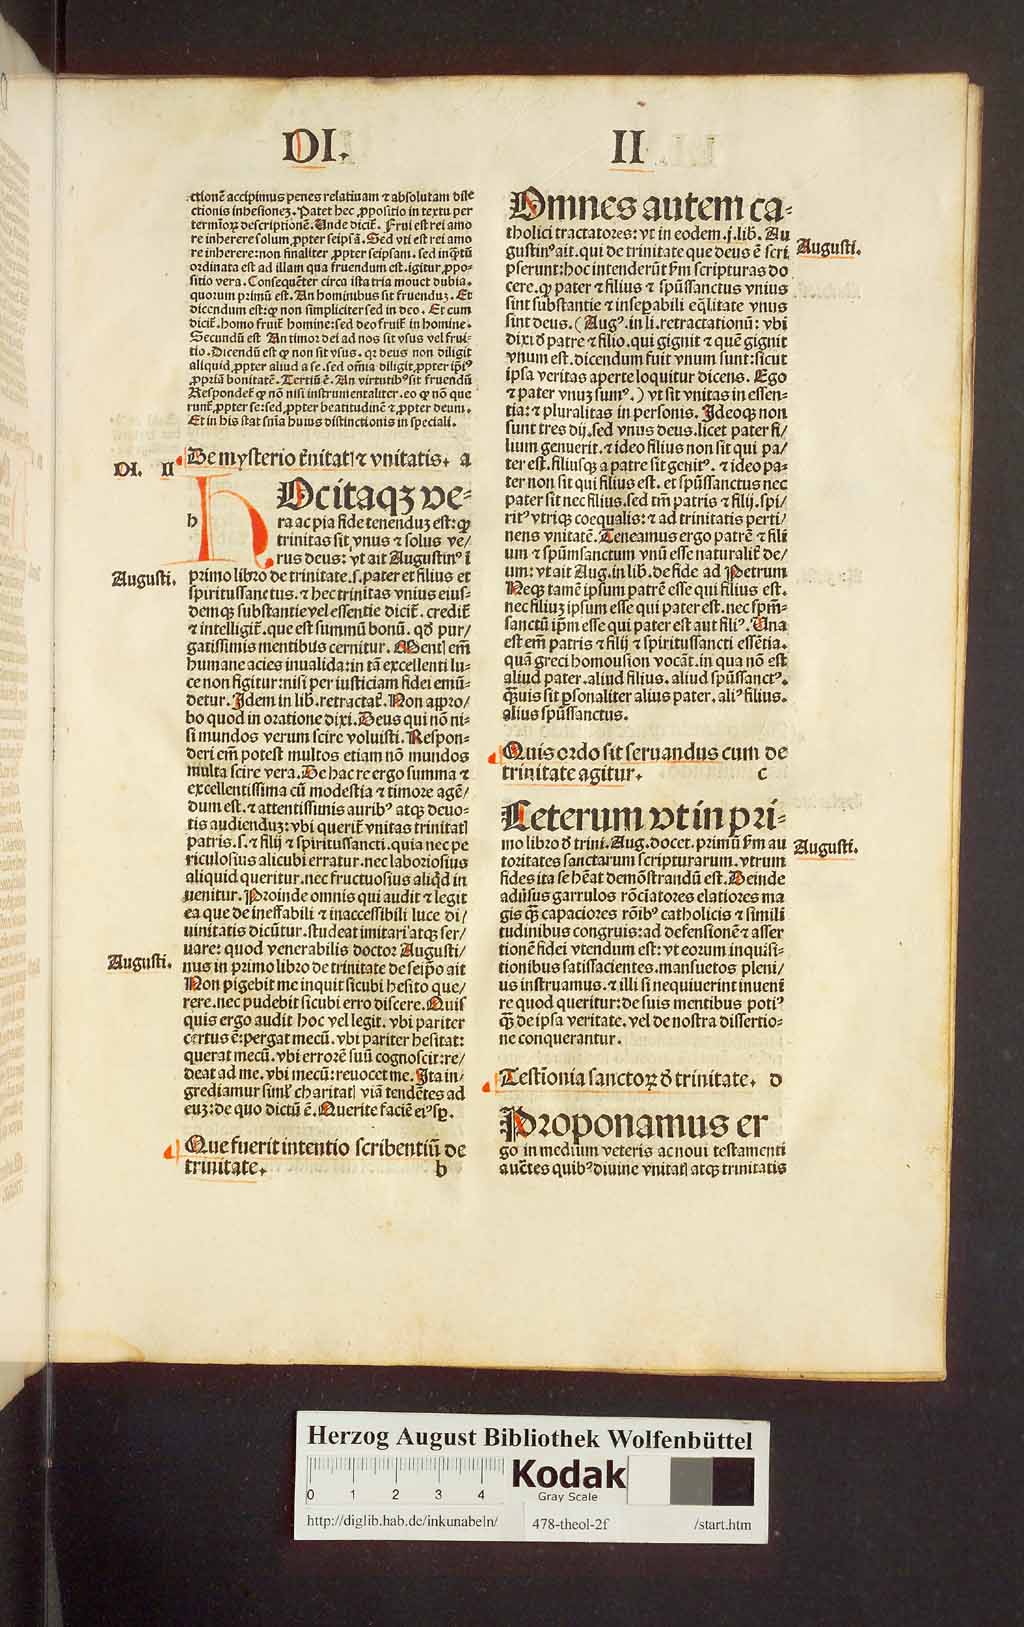 DI.
II
ctionē accipimus penes relatiuam ⁊ absolutam diste
ctionis inhesionez. Patet hec ꝓpositio in textu per
termīoꝝ descriptionē. Unde dicit̄. Frui est rei amo
re inherere solum ꝓpter seipsā. Sed vti est rei amo
re inherere: non finaliter ꝓpter seipsam. sed inqͣtū
ordinata est ad illam qua fruendum est. igitur ꝓpo-
sitio vera. Consequēter circa ista tria mouet dubia.
quorum primū est. An hominibus sit fruenduz. Et
dicendum est: ꝙ non simpliciter sed in deo. Et cum
dicit̄. homo fruit̄ homine: sed deo fruit̄ in homine.
Secundū est An timor dei ad nos sit vsus vel frui-
tio. Dicendū est ꝙ non sit vsus. qꝛ deus non diligit
aliquid ꝓpter aliud a se. sed oīnia diligit ꝓpter ip̄iꝰ
ꝓpriā bonitatē. Tertiū ē. An virtutibꝰ sit fruendū
Respondet̄ ꝙ nō nisi instrumentaliter. eo ꝙ nō que
runt̄ ꝓpter se: sed ꝓpter beatitudinē ⁊ ꝓpter deum.
Et in his stat sn̄ia huius distinctionis in speciali.
DI. II
De mysterio t̄nitatꝭ ⁊ vnitatis. a
h
Ocitaqꝫ ve-
ra ac pia fide tenenduz est: ꝙ
trinitas sit vnus ⁊ solus ve/
rus deus: vt ait Augustinꝰ ī
Augusti.
primo libro de trinitate. s. pater et filius et
spiritussanctus. ⁊ hec trinitas vnius eius-
demqꝫ substantie vel essentie dicit̄. credit̄
⁊ intelligit̄. que est summū bonū. qd̄ pur/
gatissimis mentibus cernitur. Mentꝭ em̄
humane acies inualida: in tā excellenti lu-
ce non figitur: nisi per iusticiam fidei emū-
detur. Idem in lib. retractat̄. Non appro/
bo quod in oratione dixi. Deus qui nō ni-
si mundos verum scire voluisti. Respon-
deri em̄ potest multos etiam nō mundos
multa scire vera. De hac re ergo summa ⁊
excellentissima cū modestia ⁊ timore agē/
dum est. ⁊ attentissimis auribꝰ atqꝫ deuo-
tis audienduz: vbi querit̄ vnitas trinitatꝭ
patris. s. ⁊ filij ⁊ spiritussancti. quia nec pe
riculosius alicubi erratur. nec laboriosius
aliquid queritur. nec fructuosius aliqd̄ in
uenitur. Proinde omnis qui audit ⁊ legit
ea que de ineffabili ⁊ inaccessibili luce di/
uinitatis dicūtur. studeat imitari atqꝫ ser/
uare: quod venerabilis doctor Augusti/
Augusti.
nus in primo libro de trinitate de seip̄o ait
Non pigebit me inquit sicubi hesito que/
rere. nec pudebit sicubi erro discere. Quis
quis ergo audit hoc vel legit. vbi pariter
certus ē: pergat mecū. vbi pariter hesitat:
querat mecū. vbi errorē suū cognoscit: re/
deat ad me. vbi mecū: reuocet me. Ita in/
grediamur siml̄ charitatꝭ viā tendētes ad
euz: de quo dictū ē. Querite faciē eiꝰ sp̄.
Que fuerit intentio scribentiū de
trinitate. b
Omnes autem ca-
tholici tractatores: vt in eodem. j. lib. Au
Augusti.
gustinꝰ ait. qui de trinitate que deus ē scri
pserunt: hoc intenderūt ẜm scripturas do
cere. ꝙ pater ⁊ filius ⁊ spūssanctus vnius
sint substantie ⁊ insepabili eq̄litate vnus
sint deus. (Augꝰ. in li. retractationū: vbi
dixi ꝺ patre ⁊ filio. qui gignit ⁊ quē gignit
vnum est. dicendum fuit vnum sunt: sicut
ipsa veritas aperte loquitur dicens. Ego
⁊ pater vnuz sumꝰ.) vt sit vnitas in essen-
tia: ⁊ pluralitas in personis. Ideoqꝫ non
sunt tres dij. sed vnus deus. licet pater fi/
lium genuerit. ⁊ ideo filius non sit qui pa/
ter est. filiusqꝫ a patre sit genitꝰ. ⁊ ideo pa-
ter non sit qui filius est. et spūssanctus nec
pater sit nec filius. sed tm̄ patris ⁊ filij. spi/
ritꝰ vtriqꝫ coequalis: ⁊ ad trinitatis perti/
nens vnitatē. Teneamus ergo patrē ⁊ fili
um ⁊ spūmsanctum vnū esse naturalit̄ de/
um: vt ait Aug. in lib. de fide ad Petrum
Neqꝫ tamē ipsum patrē esse qui filius est.
nec filiuz ipsum esse qui pater est. nec spm̄-
sanctū ip̄m esse qui pater est aut filiꝰ. Una
est em̄ patris ⁊ filij ⁊ spiritussancti essētia.
quā greci homousion vocāt. in qua nō est
aliud pater. aliud filius. aliud spūssanctꝰ.
Q̄uis sit ꝑsonaliter alius pater. aliꝰ filius.
alius spūssanctus.
Quis ordo sit seruandus cum de
trinitate agitur. c
Ceterum vt in pri-
mo libro ꝺ trini. Aug. docet. primū ẜm au
Augusti.
toritates sanctarum scripturarum. vtrum
fides ita se hēat demōstrandū est. Deinde
aduersus garrulos rōciatores elatiores ma
gis q̄ꝫ capaciores rōibꝰ catholicis ⁊ simili
tudinibus congruis: ad defensionē ⁊ asser
tionē fidei vtendum est: vt eorum inquisi-
tionibus satisfacientes. mansuetos pleni/
us instruamus. ⁊ illi si nequiuerint inuenir̄
re quod queritur: de suis mentibus potiꝰ
q̄ꝫ de ipsa veritate. vel de nostra dissertio-
ne conquerantur.
Testīonia sanctoꝝ ꝺ trinitate. d
Proponamus er
go in medium veteris ac noui testamenti
auc̄tes quibꝰ diuine vnitatꝭ atqꝫ trinitatis
Herzog August Bibliothek Wolfenbüttel
0 1 2 3 4
Kodak
Gray Scale
http://diglib.hab.de/inkunabeln/ 478-theol-2f /start.htm